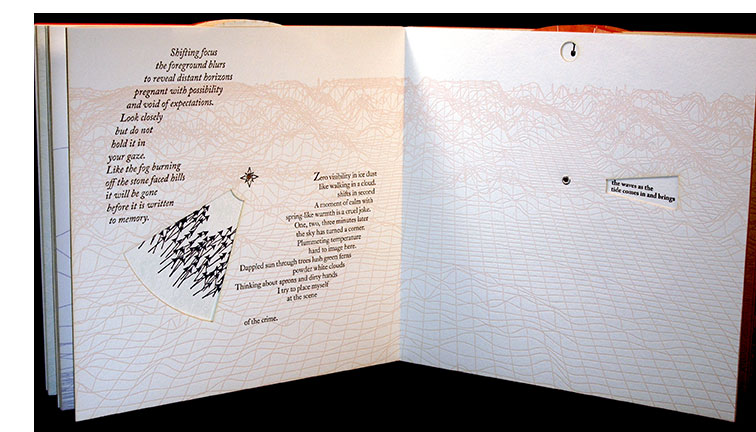 Shifting focus
the foreground blurs
to reveal distant horizons
pregnant with possibility
and void of expectations.
Look closely
but do not
hold it in
your gaze.
Like the fog burning
off the stone faced hills
it will be gone
before it is written
to memory.
Zero visibility in ice dust
like walking in a cloud.
shifts in second
A moment of calm with
spring-like warmth is a cruel joke.
One, two, three minutes later
the sky has turned a corner.
Plummeting temperature
hard to image here.
Dappled sun through trees lush green ferns
powder white clouds
Thinking about aprons and dirty hands
I try to place myself
at the scene
of the crime.
the waves as the
tide comes in and brings